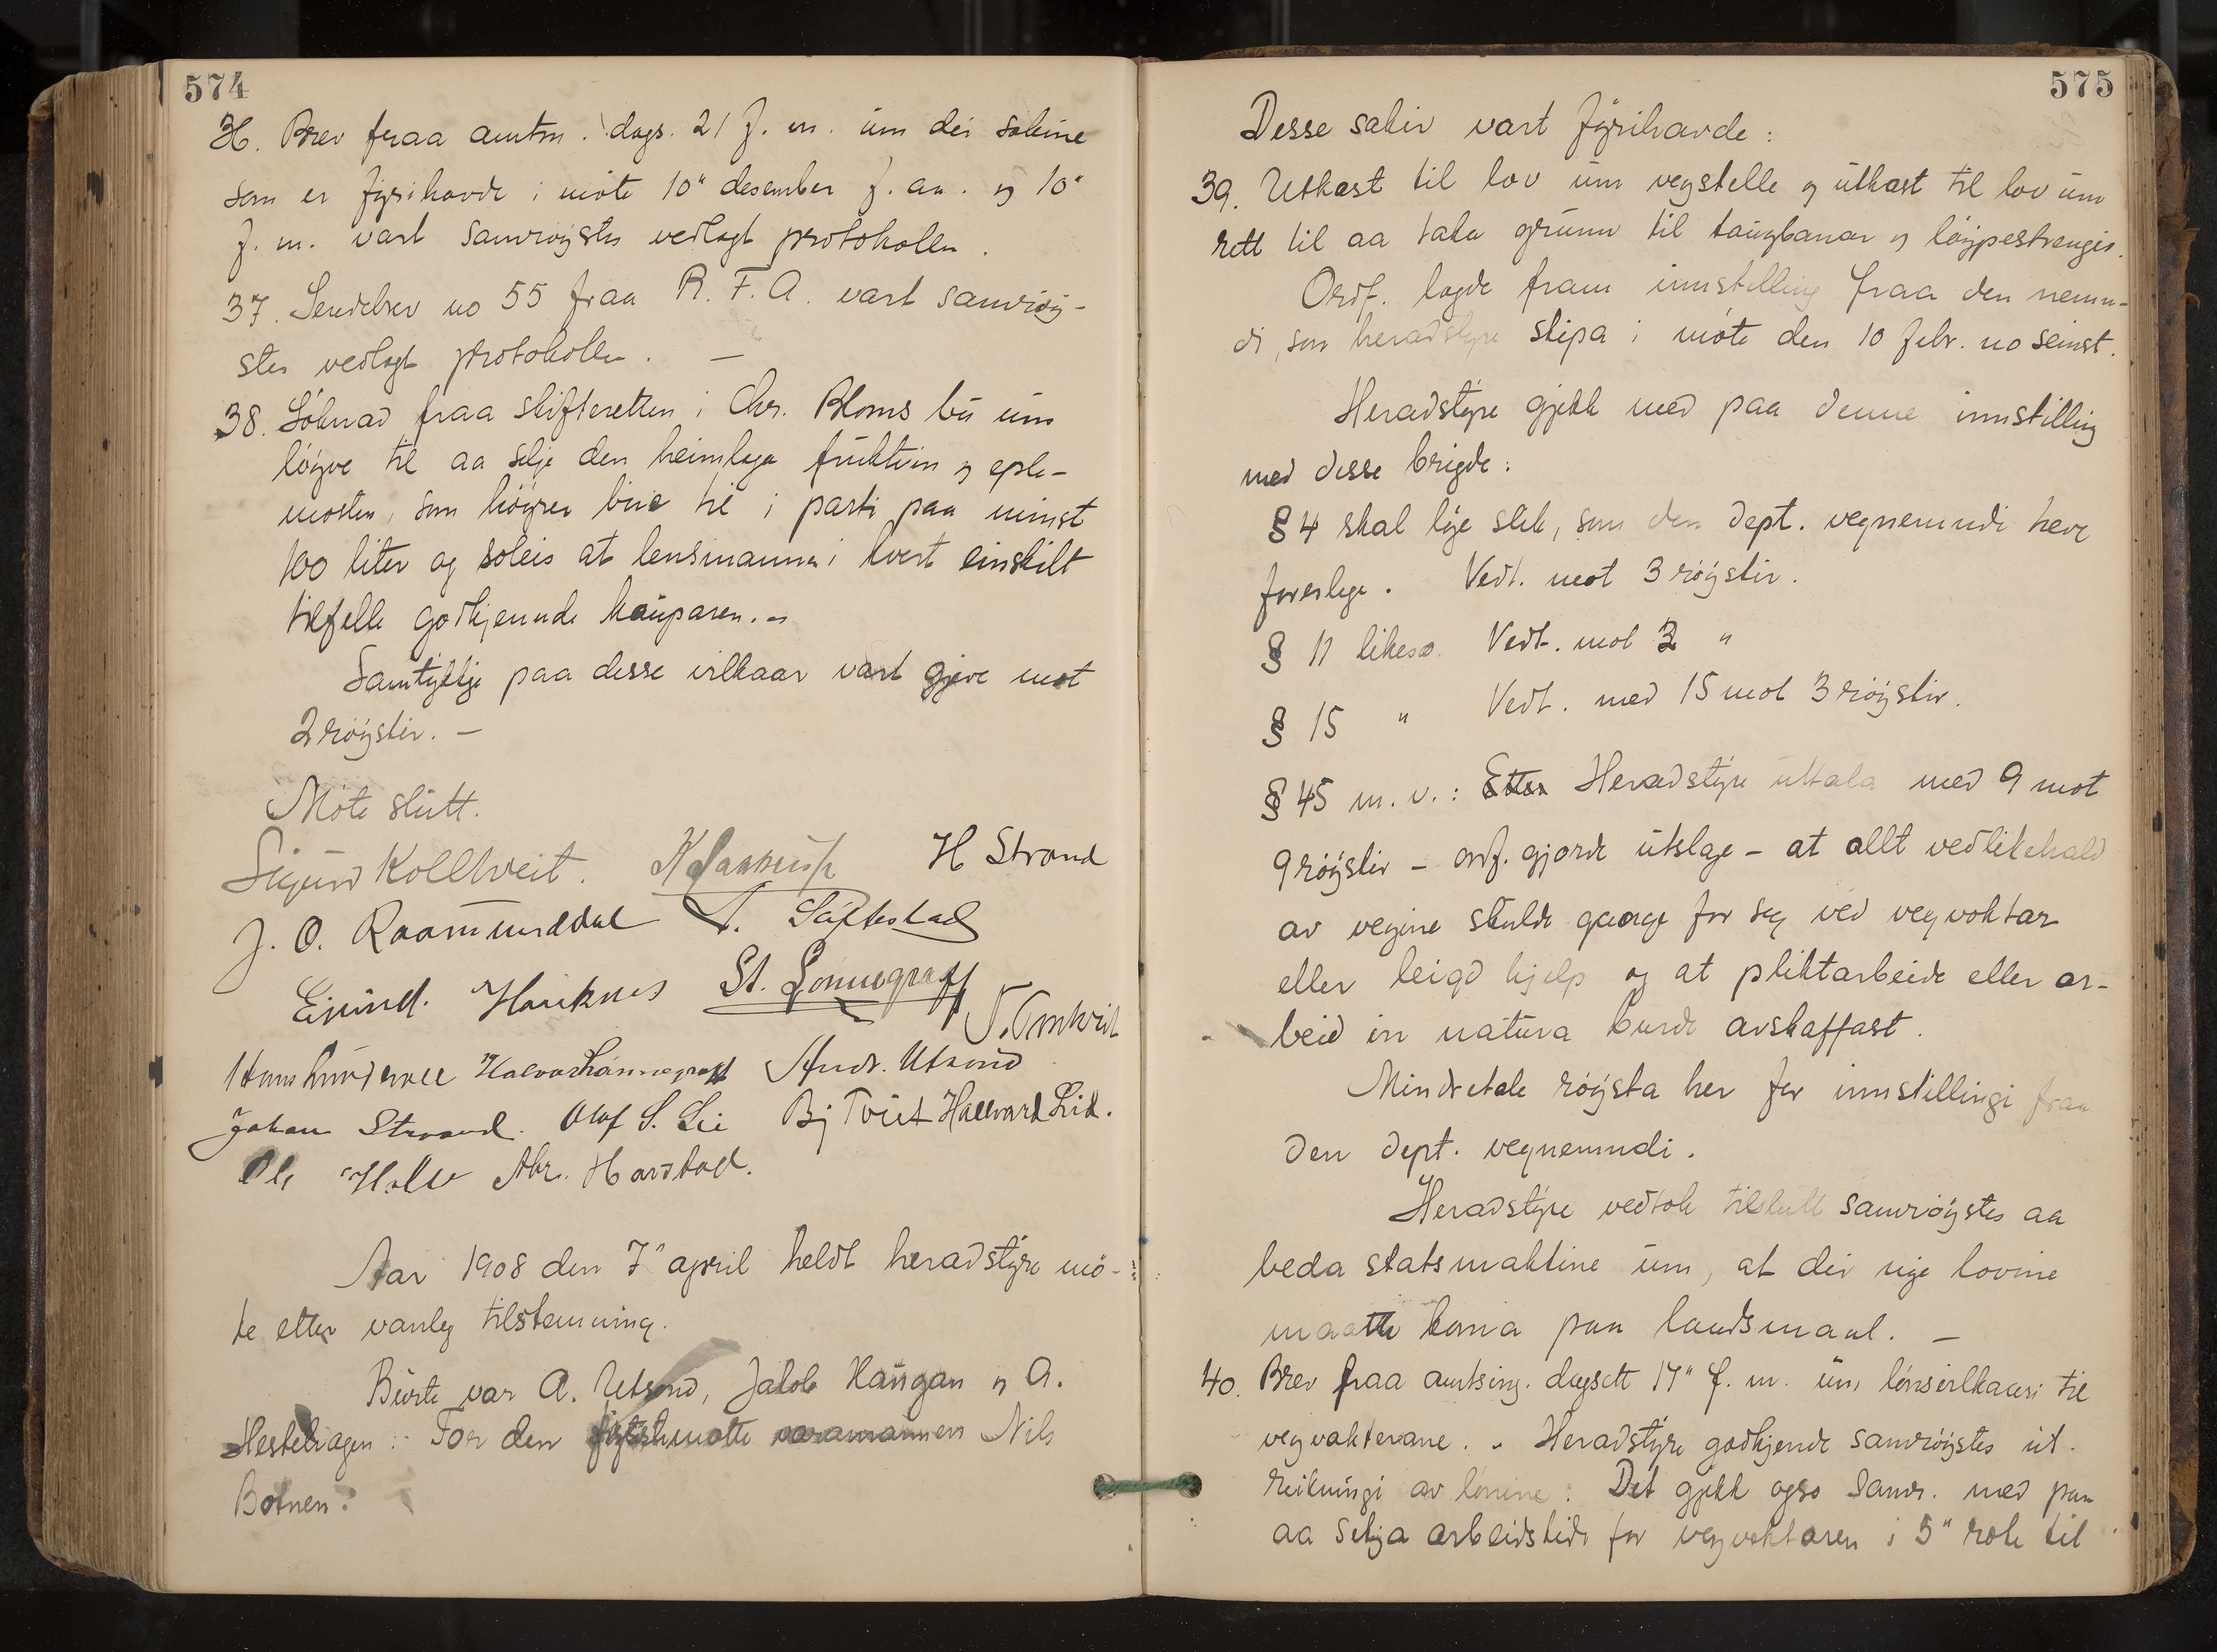 574
36. Brev fraa amtm. dags. 21 f. m. um dei sakine
som er fyrihavde i møte 10" desember f. aa. og 10"
f. m. vart samrøystes vedlagt protokollen.
37. Sendebrev no 55 fraa R. F. A. vart samrøy-
stes vedlagt protokollen. —
38. Søknad fraa skifteretten i Chr. Bloms bu um
løyve til aa selje den heimlaga fruktvin og eple-
mosten, som høyrer buet til i parti paa minst
100 liter og soleis at lensmannen i kvert einskilt
tilfelle godkjennde kauparen. –
Samtykkje paa desse vilkaar vart gjeve mot
2 røyster. —
Møte slutt.
Sigurd Kolltveit. H Strand
J. O. Raamunddal T. Säftestad
Eivind Haukness St. Lönnegraff
Halvor Lönnegraff Andr. Utsund
Johan Strand. Olof S. Lie Bj Tveit Hallvard Lid.
Ole Holte Abr. Harstad.
Aar 1908 den 7" april heldt heradstyre mø-
te etter vanleg tilstemning.
Burte var A. Utsund, Jakob Haugan og A.
Hestehagen. For den varamannen Nils
Botnen.
575
Desse saker vart fyrihavde:
39. Utkast til lov um vegstelle og utkast til lov um
rett til aa taka grunn til taugbanar og løypestrenger.
Ordf. lagde fram innstelling fraa den nemn-
di, som heradstyre skipa i møte den 10 febr. no seinst.
Heradstyre gjekk med paa denne innstilling
med desse brigde:
§ 4 skal lyde slik, som den dept. vegnemndi heve
foreslege. Vedt. mot 3 røyster.
§ 11 likeso. Vedt. mot 3 "
§ 15 " Vedt. med 15 mot 3 røyster.
§ 45 m. v.: Etter Heradstyre uttala med 9 mot
9 røyster – ordf. gjorde utslage – at allt vedlikehald
av vegine skulde gange for seg ved vegvoktar
eller leigd hjelp og at pliktarbeide eller ar-
beid in natura burde avskaffast.
Mindretale røysta her for innstillingi fraa
den dept. vegnemndi.
Heradstyre vedtok tilslutt samrøystes aa
beda statsmaktine um, at dei nye lovine
maatte koma paa landsmaal. —
40. Brev fraa amtsing. dagsett 17" f. m. um lønsvilkaari til
vegvaktarane. – Heradstyre godkjende samrøystes ut-
reikningi av lønine. Det gjekk ogso samr. med paa
aa setja arbeidstidi for vegvoktaren i 5" rode til